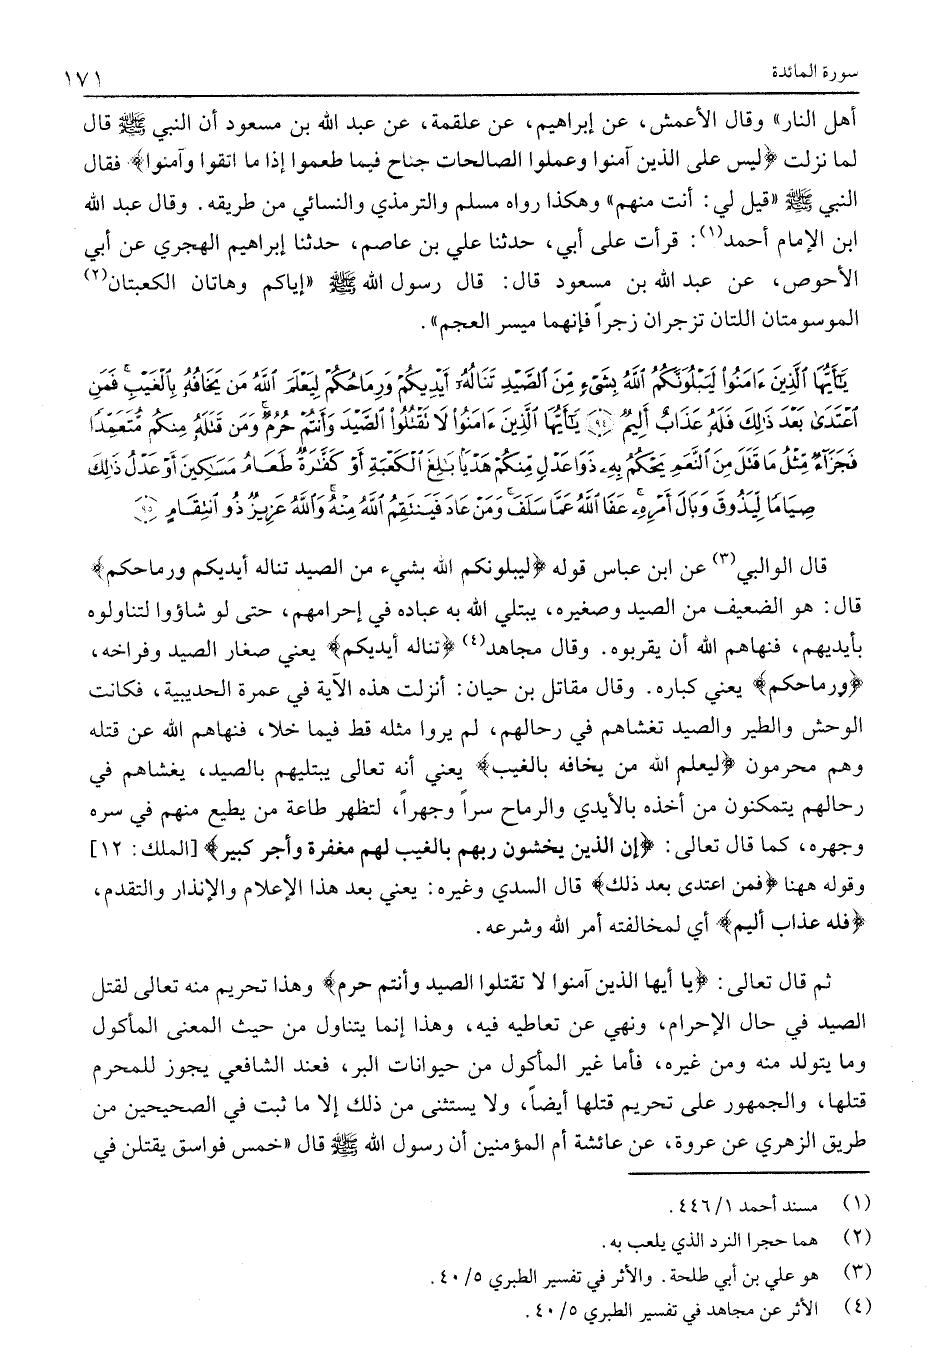 سورة المائدة
١٧١
أهل النار» وقال الأعمش، عن إبراهيم، عن علقمة، عن عبد الله بن مسعود أن النبي ﷺ قال
لما نزلت ﴿ليس على الذين آمنوا وعملوا الصالحات جناح فيما طعموا إذا ما اتقوا وآمنوا﴾ فقال
النبي ﷺ «قيل لي: أنت منهم» وهكذا رواه مسلم والترمذي والنسائي من طريقه. وقال عبد الله
ابن الإمام أحمد(١): قرأت على أبي، حدثنا علي بن عاصم، حدثنا إبراهيم الهجري عن أبي
الأحوص، عن عبد الله بن مسعود قال: قال رسول الله ﷺ «إياكم وهاتان الكعبتان(٢)
الموسومتان اللتان تزجران زجراً فإنهما ميسر العجم».
يَٰٓأَيُّهَا ٱلَّذِينَ ءَامَنُوا۟ لَيَبْلُوَنَّكُمُ ٱللَّهُ بِشَىْءٍ مِّنَ ٱلصَّيْدِ تَنَالُهُۥٓ أَيْدِيكُمْ وَرِمَاحُكُمْ لِيَعْلَمَ ٱللَّهُ مَن يَخَافُهُۥ بِٱلْغَيْبِ ۚ فَمَنِ
ٱعْتَدَىٰ بَعْدَ ذَٰلِكَ فَلَهُۥ عَذَابٌ أَلِيمٌ ﴿٩٤﴾ يَٰٓأَيُّهَا ٱلَّذِينَ ءَامَنُوا۟ لَا تَقْتُلُوا۟ ٱلصَّيْدَ وَأَنتُمْ حُرُمٌ ۚ وَمَن قَتَلَهُۥ مِنكُم مُّتَعَمِّدًا
فَجَزَآءٌ مِّثْلُ مَا قَتَلَ مِنَ ٱلنَّعَمِ يَحْكُمُ بِهِۦ ذَوَا عَدْلٍ مِّنكُمْ هَدْيًۢا بَٰلِغَ ٱلْكَعْبَةِ أَوْ كَفَّٰرَةٌ طَعَامُ مَسَٰكِينَ أَوْ عَدْلُ ذَٰلِكَ
صِيَامًا لِّيَذُوقَ وَبَالَ أَمْرِهِۦ ۗ عَفَا ٱللَّهُ عَمَّا سَلَفَ ۚ وَمَنْ عَادَ فَيَنتَقِمُ ٱللَّهُ مِنْهُ ۗ وَٱللَّهُ عَزِيزٌ ذُو ٱنتِقَامٍ ﴿٩٥﴾
قال الوالبي(٣) عن ابن عباس قوله ﴿ليبلونكم الله بشيء من الصيد تناله أيديكم ورماحكم﴾
قال: هو الضعيف من الصيد وصغيره، يبتلي الله به عباده في إحرامهم، حتى لو شاؤوا لتناولوه
بأيديهم، فنهاهم الله أن يقربوه. وقال مجاهد(٤) ﴿تناله أيديكم﴾ يعني صغار الصيد وفراخه،
﴿ورماحكم﴾ يعني كباره. وقال مقاتل بن حيان: أنزلت هذه الآية في عمرة الحديبية، فكانت
الوحش والطير والصيد تغشاهم في رحالهم، لم يروا مثله قط فيما خلا، فنهاهم الله عن قتله
وهم محرمون ﴿ليعلم الله من يخافه بالغيب﴾ يعني أنه تعالى يبتليهم بالصيد، يغشاهم في
رحالهم يتمكنون من أخذه بالأيدي والرماح سراً وجهراً، لتظهر طاعة من يطيع منهم في سره
وجهره، كما قال تعالى: ﴿إن الذين يخشون ربهم بالغيب لهم مغفرة وأجر كبير﴾ [الملك: ١٢]
وقوله ههنا ﴿فمن اعتدى بعد ذلك﴾ قال السدي وغيره: يعني بعد هذا الإعلام والإنذار والتقدم،
﴿فله عذاب أليم﴾ أي لمخالفته أمر الله وشرعه.
ثم قال تعالى: ﴿يا أيها الذين آمنوا لا تقتلوا الصيد وأنتم حرم﴾ وهذا تحريم منه تعالى لقتل
الصيد في حال الإحرام، ونهي عن تعاطيه فيه، وهذا إنما يتناول من حيث المعنى المأكول
وما يتولد منه ومن غيره، فأما غير المأكول من حيوانات البر، فعند الشافعي يجوز للمحرم
قتلها، والجمهور على تحريم قتلها أيضاً، ولا يستثنى من ذلك إلا ما ثبت في الصحيحين من
طريق الزهري عن عروة، عن عائشة أم المؤمنين أن رسول الله ﷺ قال «خمس فواسق يقتلن في
(١) مسند أحمد ١/ ٤٤٦.
(٢) هما حجرا النرد الذي يلعب به.
(٣) هو علي بن أبي طلحة. والأثر في تفسير الطبري ٥/ ٤٠.
(٤) الأثر عن مجاهد في تفسير الطبري ٥/ ٤٠.